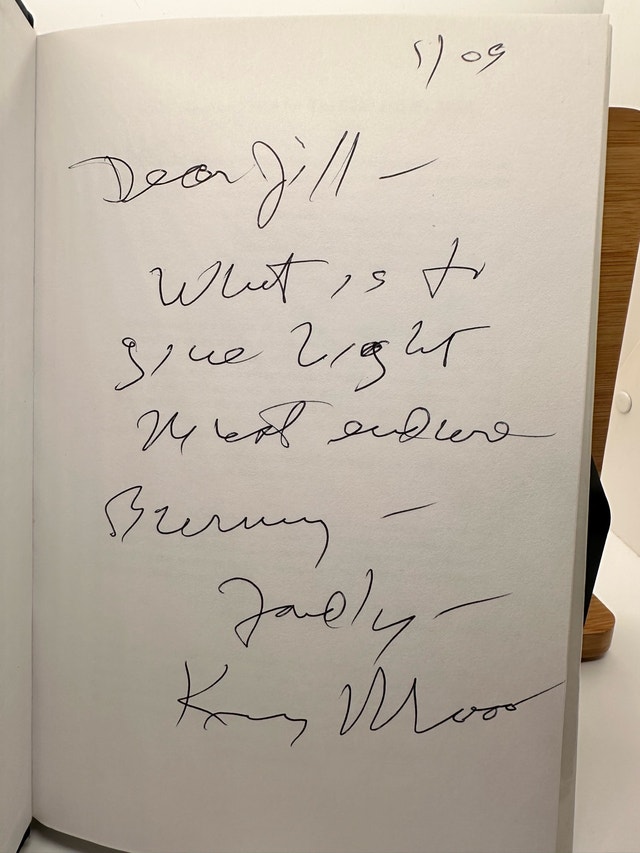 5/09
Dear Jill —
What is to
give light
Must endure
Burning —
Fondly —